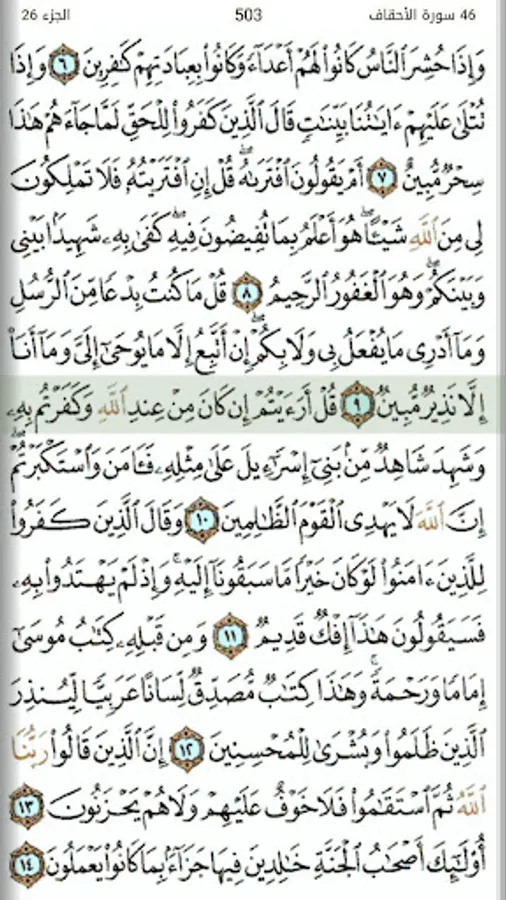 46 سورة الأحقاف 503 الجزء 26
وَإِذَا حُشِرَ ٱلنَّاسُ كَانُوا۟ لَهُمْ أَعْدَآءً وَكَانُوا۟ بِعِبَادَتِهِمْ كَٰفِرِينَ ٦ وَإِذَا
تُتْلَىٰ عَلَيْهِمْ ءَايَٰتُنَا بَيِّنَٰتٍ قَالَ ٱلَّذِينَ كَفَرُوا۟ لِلْحَقِّ لَمَّا جَآءَهُمْ هَٰذَا
سِحْرٌ مُّبِينٌ ٧ أَمْ يَقُولُونَ ٱفْتَرَىٰهُ ۖ قُلْ إِنِ ٱفْتَرَيْتُهُۥ فَلَا تَمْلِكُونَ
لِى مِنَ ٱللَّهِ شَيْـًٔا ۖ هُوَ أَعْلَمُ بِمَا تُفِيضُونَ فِيهِ ۖ كَفَىٰ بِهِۦ شَهِيدًۢا بَيْنِى
وَبَيْنَكُمْ ۖ وَهُوَ ٱلْغَفُورُ ٱلرَّحِيمُ ٨ قُلْ مَا كُنتُ بِدْعًا مِّنَ ٱلرُّسُلِ
وَمَآ أَدْرِى مَا يُفْعَلُ بِى وَلَا بِكُمْ ۖ إِنْ أَتَّبِعُ إِلَّا مَا يُوحَىٰٓ إِلَىَّ وَمَآ أَنَا۠
إِلَّا نَذِيرٌ مُّبِينٌ ٩ قُلْ أَرَءَيْتُمْ إِن كَانَ مِنْ عِندِ ٱللَّهِ وَكَفَرْتُم بِهِۦ
وَشَهِدَ شَاهِدٌ مِّنۢ بَنِىٓ إِسْرَٰٓءِيلَ عَلَىٰ مِثْلِهِۦ فَـَٔامَنَ وَٱسْتَكْبَرْتُمْ ۖ
إِنَّ ٱللَّهَ لَا يَهْدِى ٱلْقَوْمَ ٱلظَّٰلِمِينَ ١٠ وَقَالَ ٱلَّذِينَ كَفَرُوا۟
لِلَّذِينَ ءَامَنُوا۟ لَوْ كَانَ خَيْرًا مَّا سَبَقُونَآ إِلَيْهِ ۚ وَإِذْ لَمْ يَهْتَدُوا۟ بِهِۦ
فَسَيَقُولُونَ هَٰذَآ إِفْكٌ قَدِيمٌ ١١ وَمِن قَبْلِهِۦ كِتَٰبُ مُوسَىٰٓ
إِمَامًا وَرَحْمَةً ۚ وَهَٰذَا كِتَٰبٌ مُّصَدِّقٌ لِّسَانًا عَرَبِيًّا لِّيُنذِرَ
ٱلَّذِينَ ظَلَمُوا۟ وَبُشْرَىٰ لِلْمُحْسِنِينَ ١٢ إِنَّ ٱلَّذِينَ قَالُوا۟ رَبُّنَا
ٱللَّهُ ثُمَّ ٱسْتَقَٰمُوا۟ فَلَا خَوْفٌ عَلَيْهِمْ وَلَا هُمْ يَحْزَنُونَ ١٣
أُو۟لَٰٓئِكَ أَصْحَٰبُ ٱلْجَنَّةِ خَٰلِدِينَ فِيهَا جَزَآءًۢ بِمَا كَانُوا۟ يَعْمَلُونَ ١٤